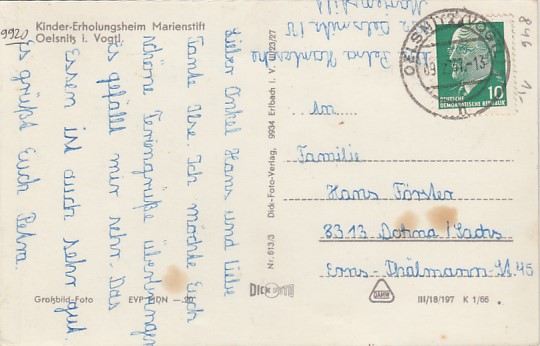 9920
Kinder-Erholungsheim Marienstift
Oelsnitz i. Vogtl.
Lieber Onkel Hans und Liebe
Tante Ilse. Ich möchte Euch
schöne Feriengrüße überbringen
Es gefällt mir sehr. Das
Essen ist auch sehr gut.
Es grüßt Euch Petra.
Großbild-Foto EVP MDN —.20
Nr. 613/3 Dick-Foto-Verlag, 9934 Erlbach i. V. III/23/27
DICK
Petra
Oelsnitz i/V
Marienstift
OELSNITZ (VOGTL)
DEUTSCHE
DEMOKRATISCHE REPUBLIK
10
846
An
Familie
Hans Förster
8313 Dohna / Sachs
Erns-Thälmann St. 45
III/18/197 K 1/66